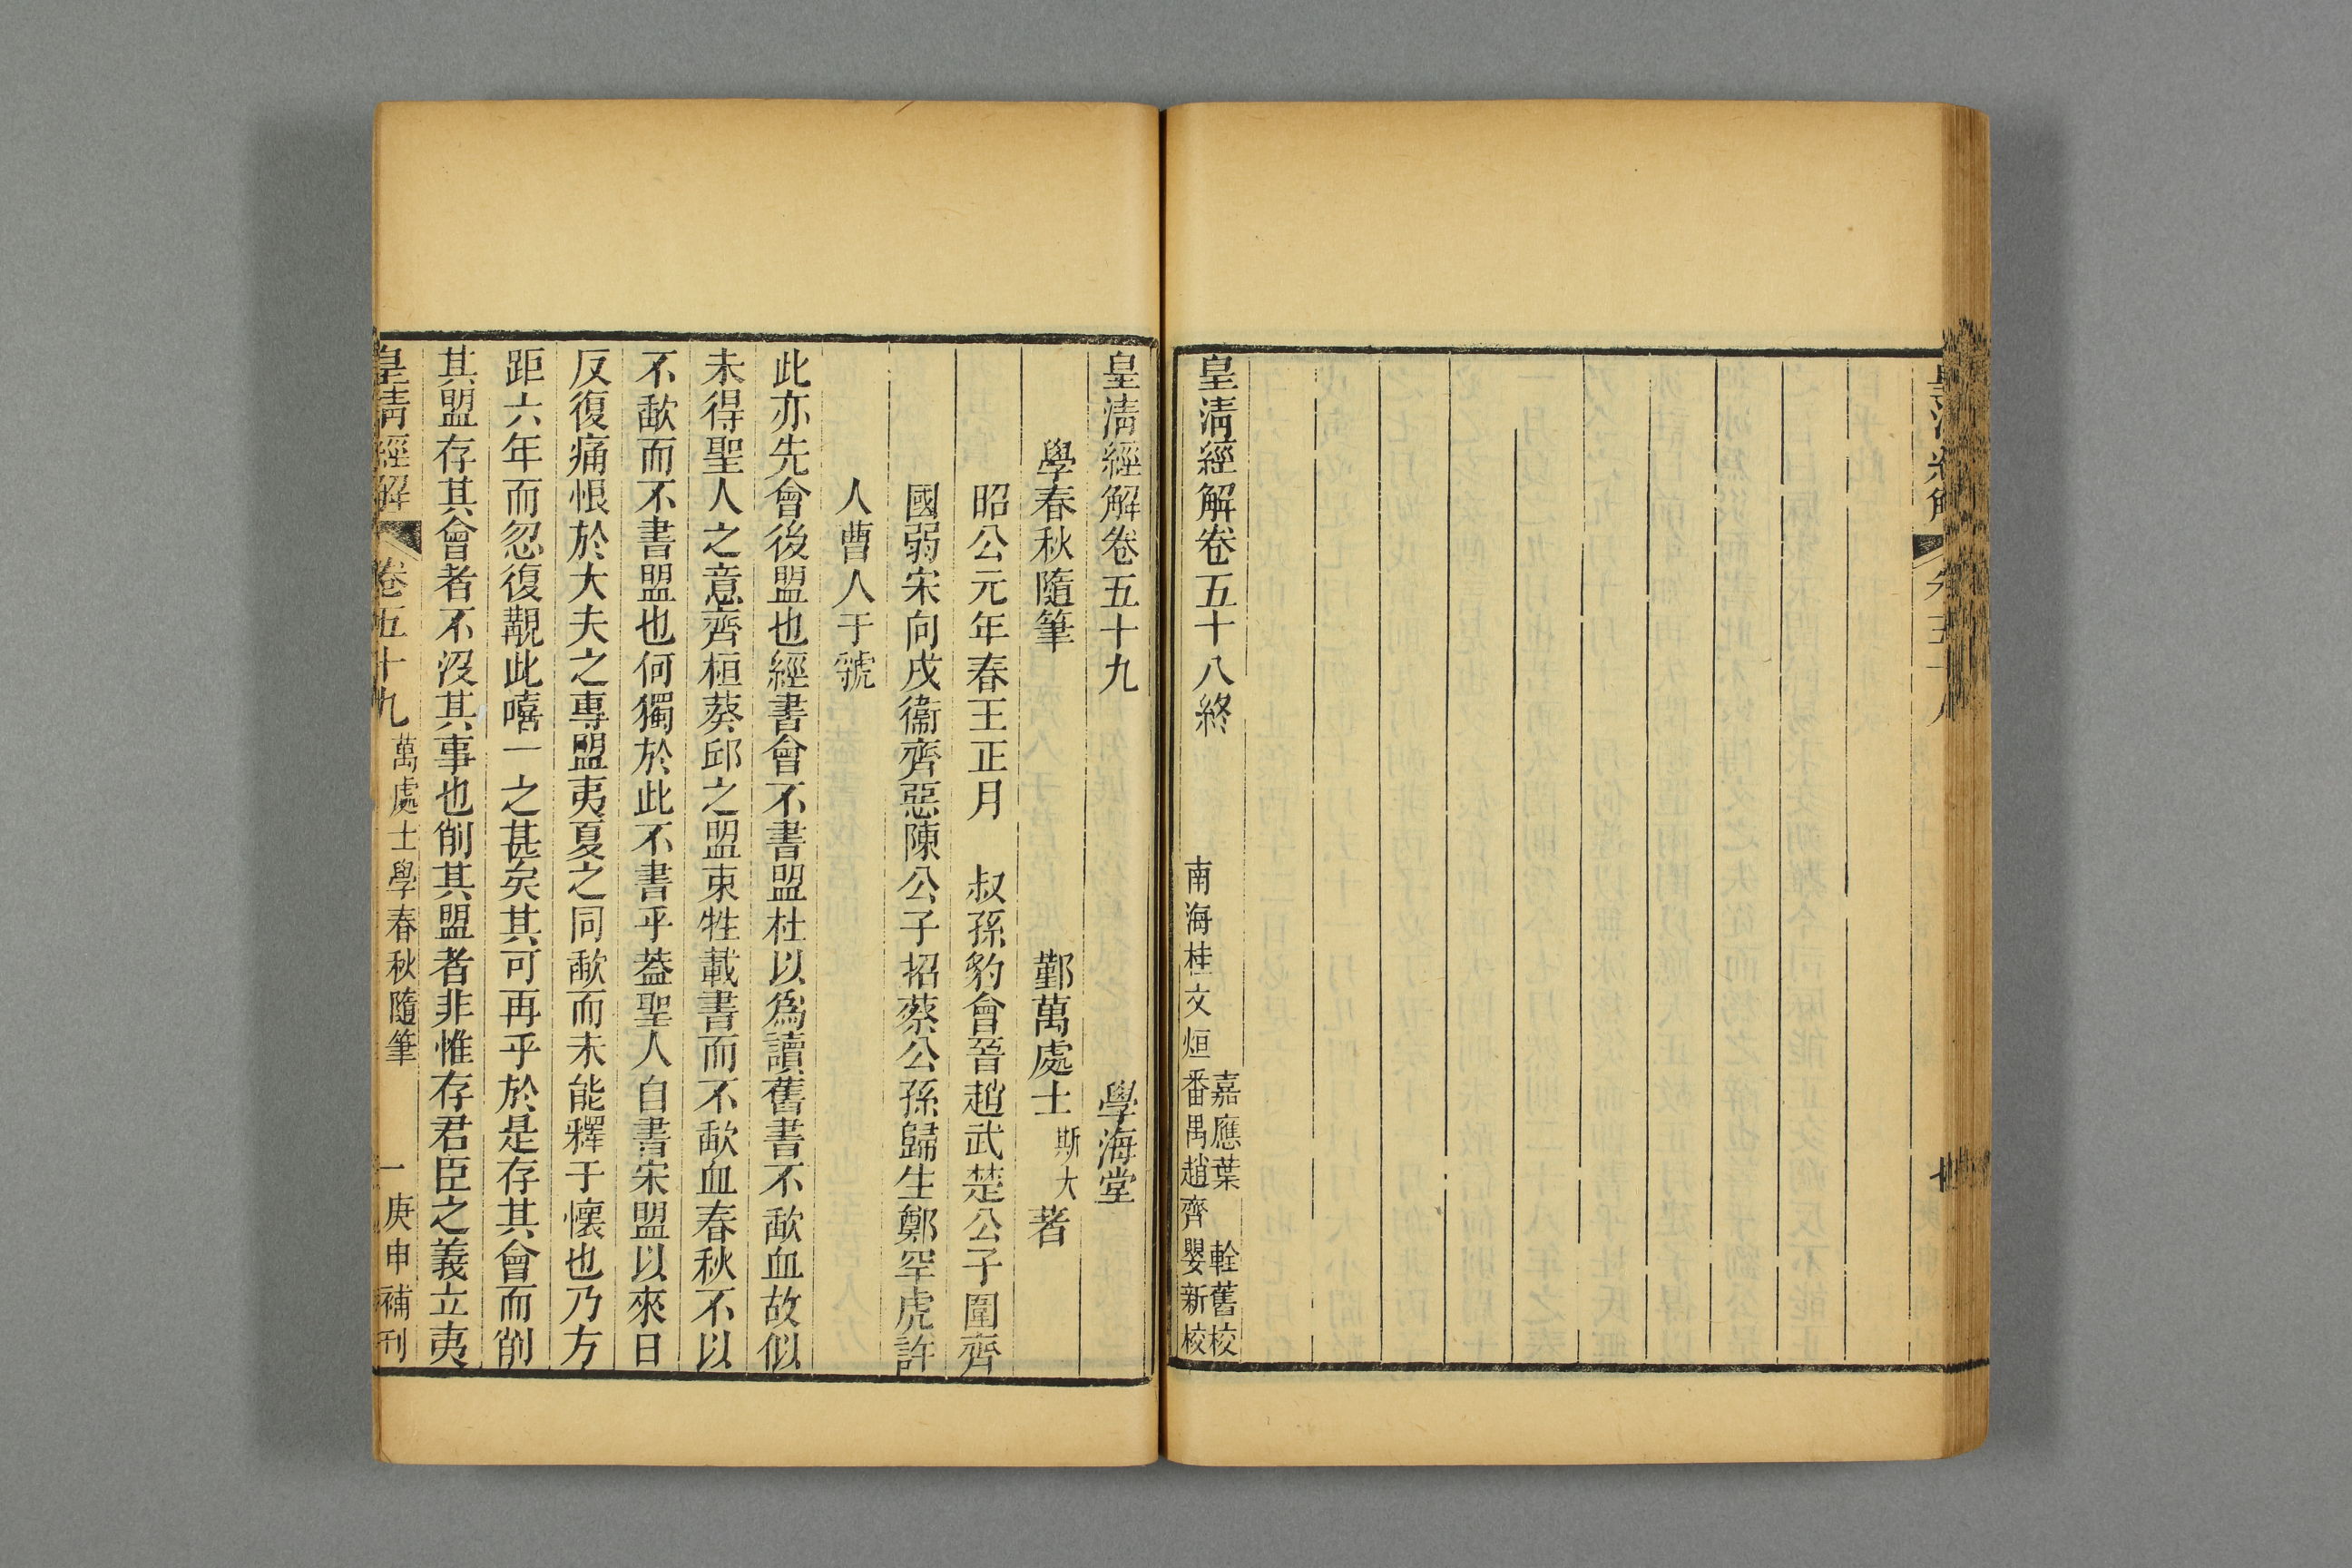 皇清經解卷五十八終
嘉應葉 輇舊校
南海桂文烜
番禺趙齊嬰新校
皇清經解卷五十九 學海堂
學春秋隨筆 鄞萬處士斯大著
昭公元年春王正月 叔孫豹會晉趙武楚公子圍齊
國弱宋向戌衞齊惡陳公子招蔡公孫歸生鄭罕虎許
人曹人于虢
此亦先會後盟也經書會不書盟杜以爲讀舊書不歃血故似
未得聖人之意齊桓葵邱之盟束牲載書而不歃血春秋不以
不歃而不書盟也何獨於此不書乎蓋聖人自書宋盟以來日
反復痛恨於大夫之專盟夷夏之同歃而未能釋于懷也乃方
距六年而忽復覩此嘻一之甚矣其可再乎於是存其會而削
其盟存其會者不沒其事也削其盟者非惟存君臣之義立夷
皇清經解 卷五十九 萬處士學春秋隨筆 一 庚申補刊